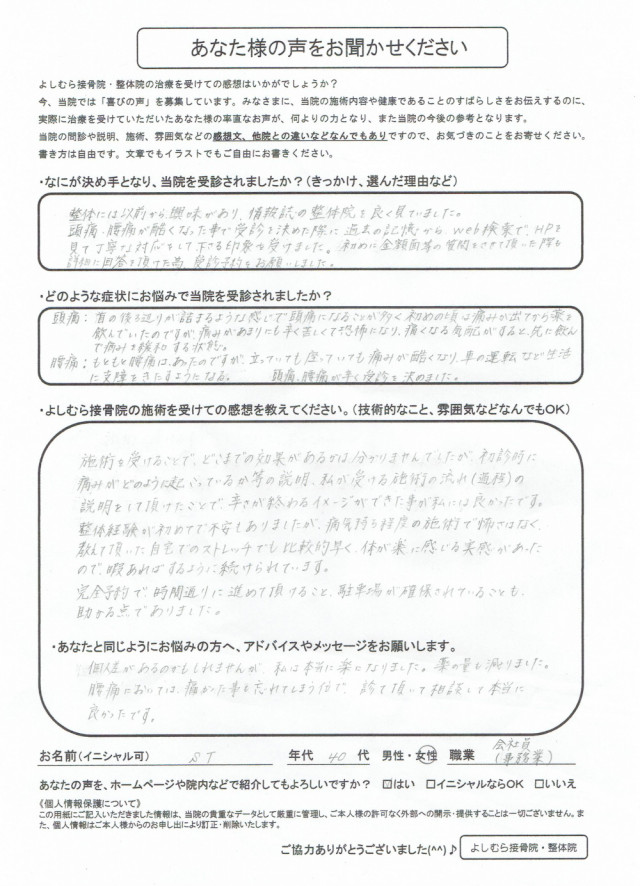 あなた様の声をお聞かせください
よしむら接骨院・整体院の治療を受けての感想はいかがでしょうか？
今、当院では「喜びの声」を募集しています。みなさまに、当院の施術内容や健康であることのすばらしさをお伝えするのに、
実際に治療を受けていただいたあなた様の率直なお声が、何よりの力となり、また当院の今後の参考となります。
当院の問診や説明、施術、雰囲気などの感想文、他院との違いなどなんでもありですので、お気づきのことをお寄せください。
書き方は自由です。文章でもイラストでもご自由にお書きください。
・なにが決め手となり、当院を受診されましたか？（きっかけ、選んだ理由など）
整体には以前から興味があり、情報誌の整体院を良く見ていました。
頭痛、腰痛が酷くなった事で受診を決めた際に過去の記憶から、web検索で、HPを
見て丁寧な対応をして下さる印象を受けました。初めに金額面等の質問をさせて頂いた際も
詳細に回答を頂けた為、受診予約をお願いしました。
・どのような症状にお悩みで当院を受診されましたか？
頭痛：首の後ろ辺りが詰まるような感じで頭痛になることが多く初めの頃は痛みが出てから薬を
飲んでいたのですが、痛みがあまりにも辛く苦しくて恐怖になり、痛くなる気配がすると、先に飲ん
で痛みを緩和する状態。
腰痛：もともと腰痛は、あったのですが、立っていても座っていても痛みが酷くなり、車の運転など生活
に支障をきたすようになる。 頭痛、腰痛が辛く受診を決めました。
・よしむら接骨院の施術を受けての感想を教えてください。（技術的なこと、雰囲気などなんでもOK）
施術を受けることで、どこまでの効果があるかは分かりませんでしたが、初診時に
痛みがどのように起こっているか等の説明、私が受ける施術の流れ(過程)の
説明をして頂けたことで、辛さが終わるイメージができた事が私には良かったです。
整体経験が初めてで不安もありましたが、病気持ち程度の施術で怖さはなく、
教えて頂いた自宅でのストレッチでも比較的早く、体が楽に感じる実感があった
ので、暇あればするように続けられています。
完全予約で、時間通りに進めて頂けること、駐車場が確保されていることも、
助かる点でありました。
・あなたと同じようにお悩みの方へ、アドバイスやメッセージをお願いします。
個人差があるのかもしれませんが、私は本当に楽になりました。薬の量も減りました。
腰痛においては、痛かった事も忘れてしまう位で、診て頂いて相談して本当に
良かったです。
お名前（イニシャル可） ST 年代 40 代 男性・女性 職業 会社員
（事務業）
あなたの声を、ホームページや院内などで紹介してもよろしいですか？ ☑はい □イニシャルならOK □いいえ
《個人情報保護について》
この用紙にご記入いただきました情報は、当院の貴重なデータとして厳重に管理し、ご本人様の許可なく外部への開示・提供することは一切ございません。ま
た、個人情報はご本人様からのお申し出により訂正・削除いたします。
ご協力ありがとうございました(^^)♪ よしむら接骨院・整体院